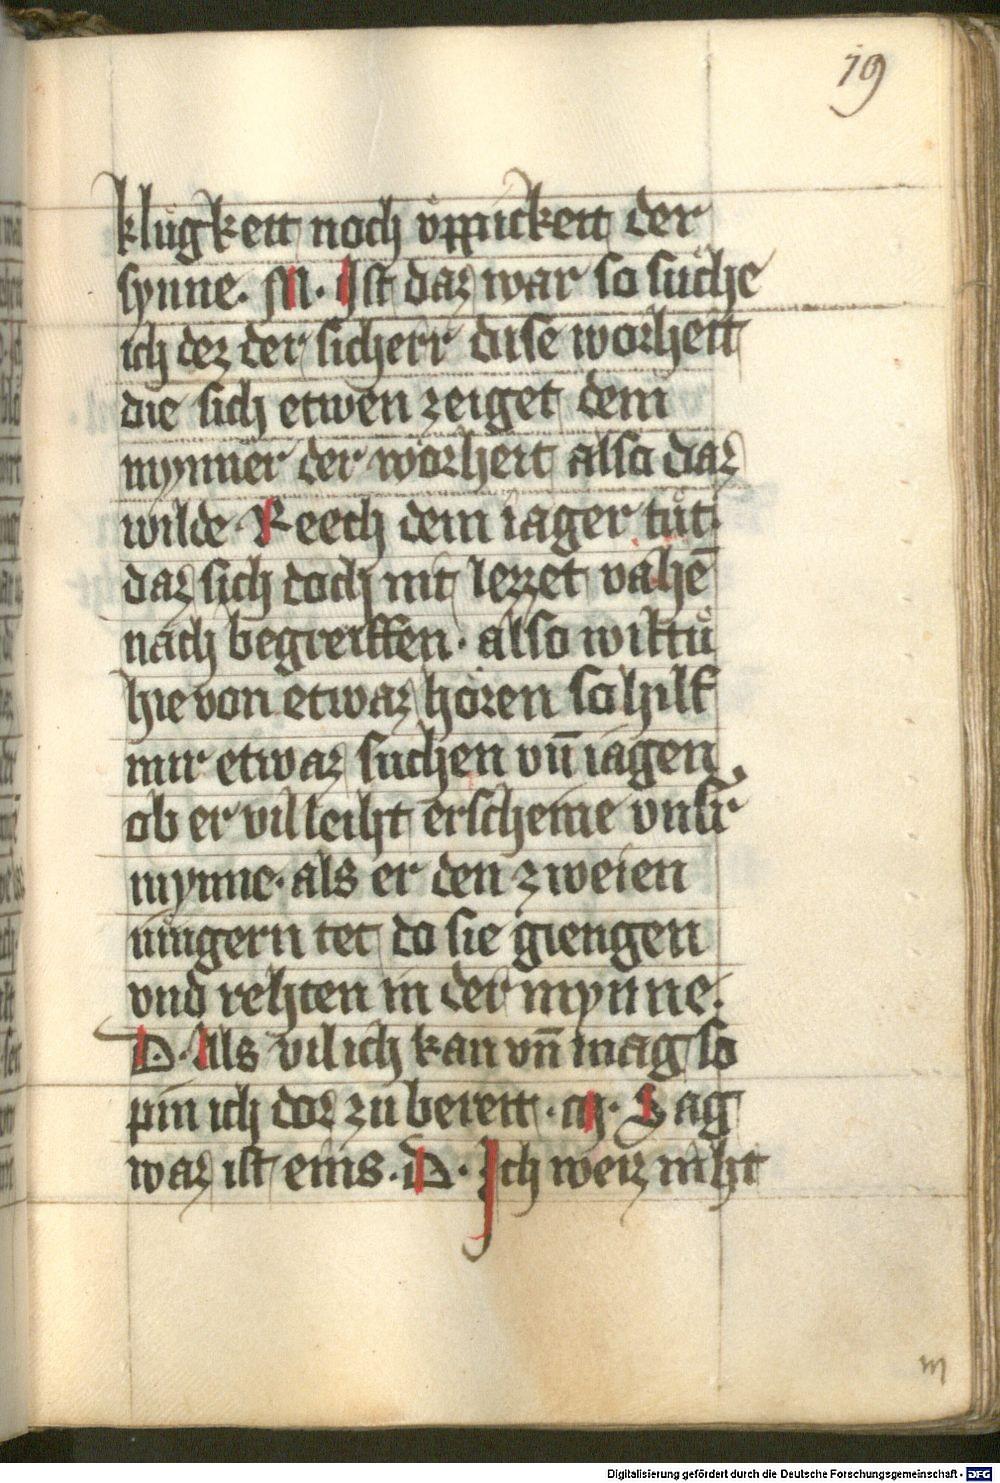 19
klůgkeit noch v̊ppickeit der
synne. M. Ist daz war so sůche
ich dez der sicherr dise worheit
die sich etwen zeiget dem
mynner der worheit also daz
wilde Reech dem iager tůt.
daz sich doch nit lezzet vahē
nach begreiffen. also wiltů
hie von etwaz hören so hilf
mir etwaz suchen vn̄ iagen
ob er villeiht erscheine vnsˀr
mynne. als er den zweien
iungern tet do sie giengen
vnd rehten in der mynne.
D. Als vil ich kan vn̄ mag so
pin ich dor zu bereit. M. Sag
waz ist eins. D. Ich weiz niht
m
Digitalisierung gefördert durch die Deutsche Forschungsgemeinschaft - DFG